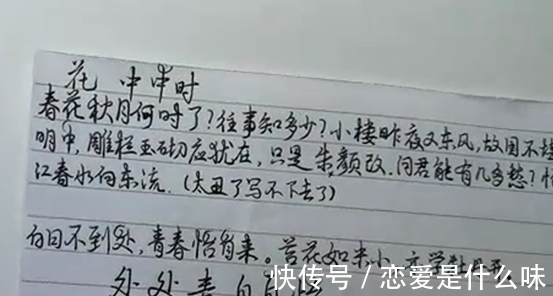 花 中中时
春花秋月何时了?往事知多少?小楼昨夜又东风,故国不堪
明中,雕栏玉砌应犹在,只是朱颜改.问君能有几多愁?恰
江春水向东流.(太丑了写不下去了)
白日不到处,青春恰自来。苔花如米小,亦学牡丹开
处处春
快传号/恋爱是什么味